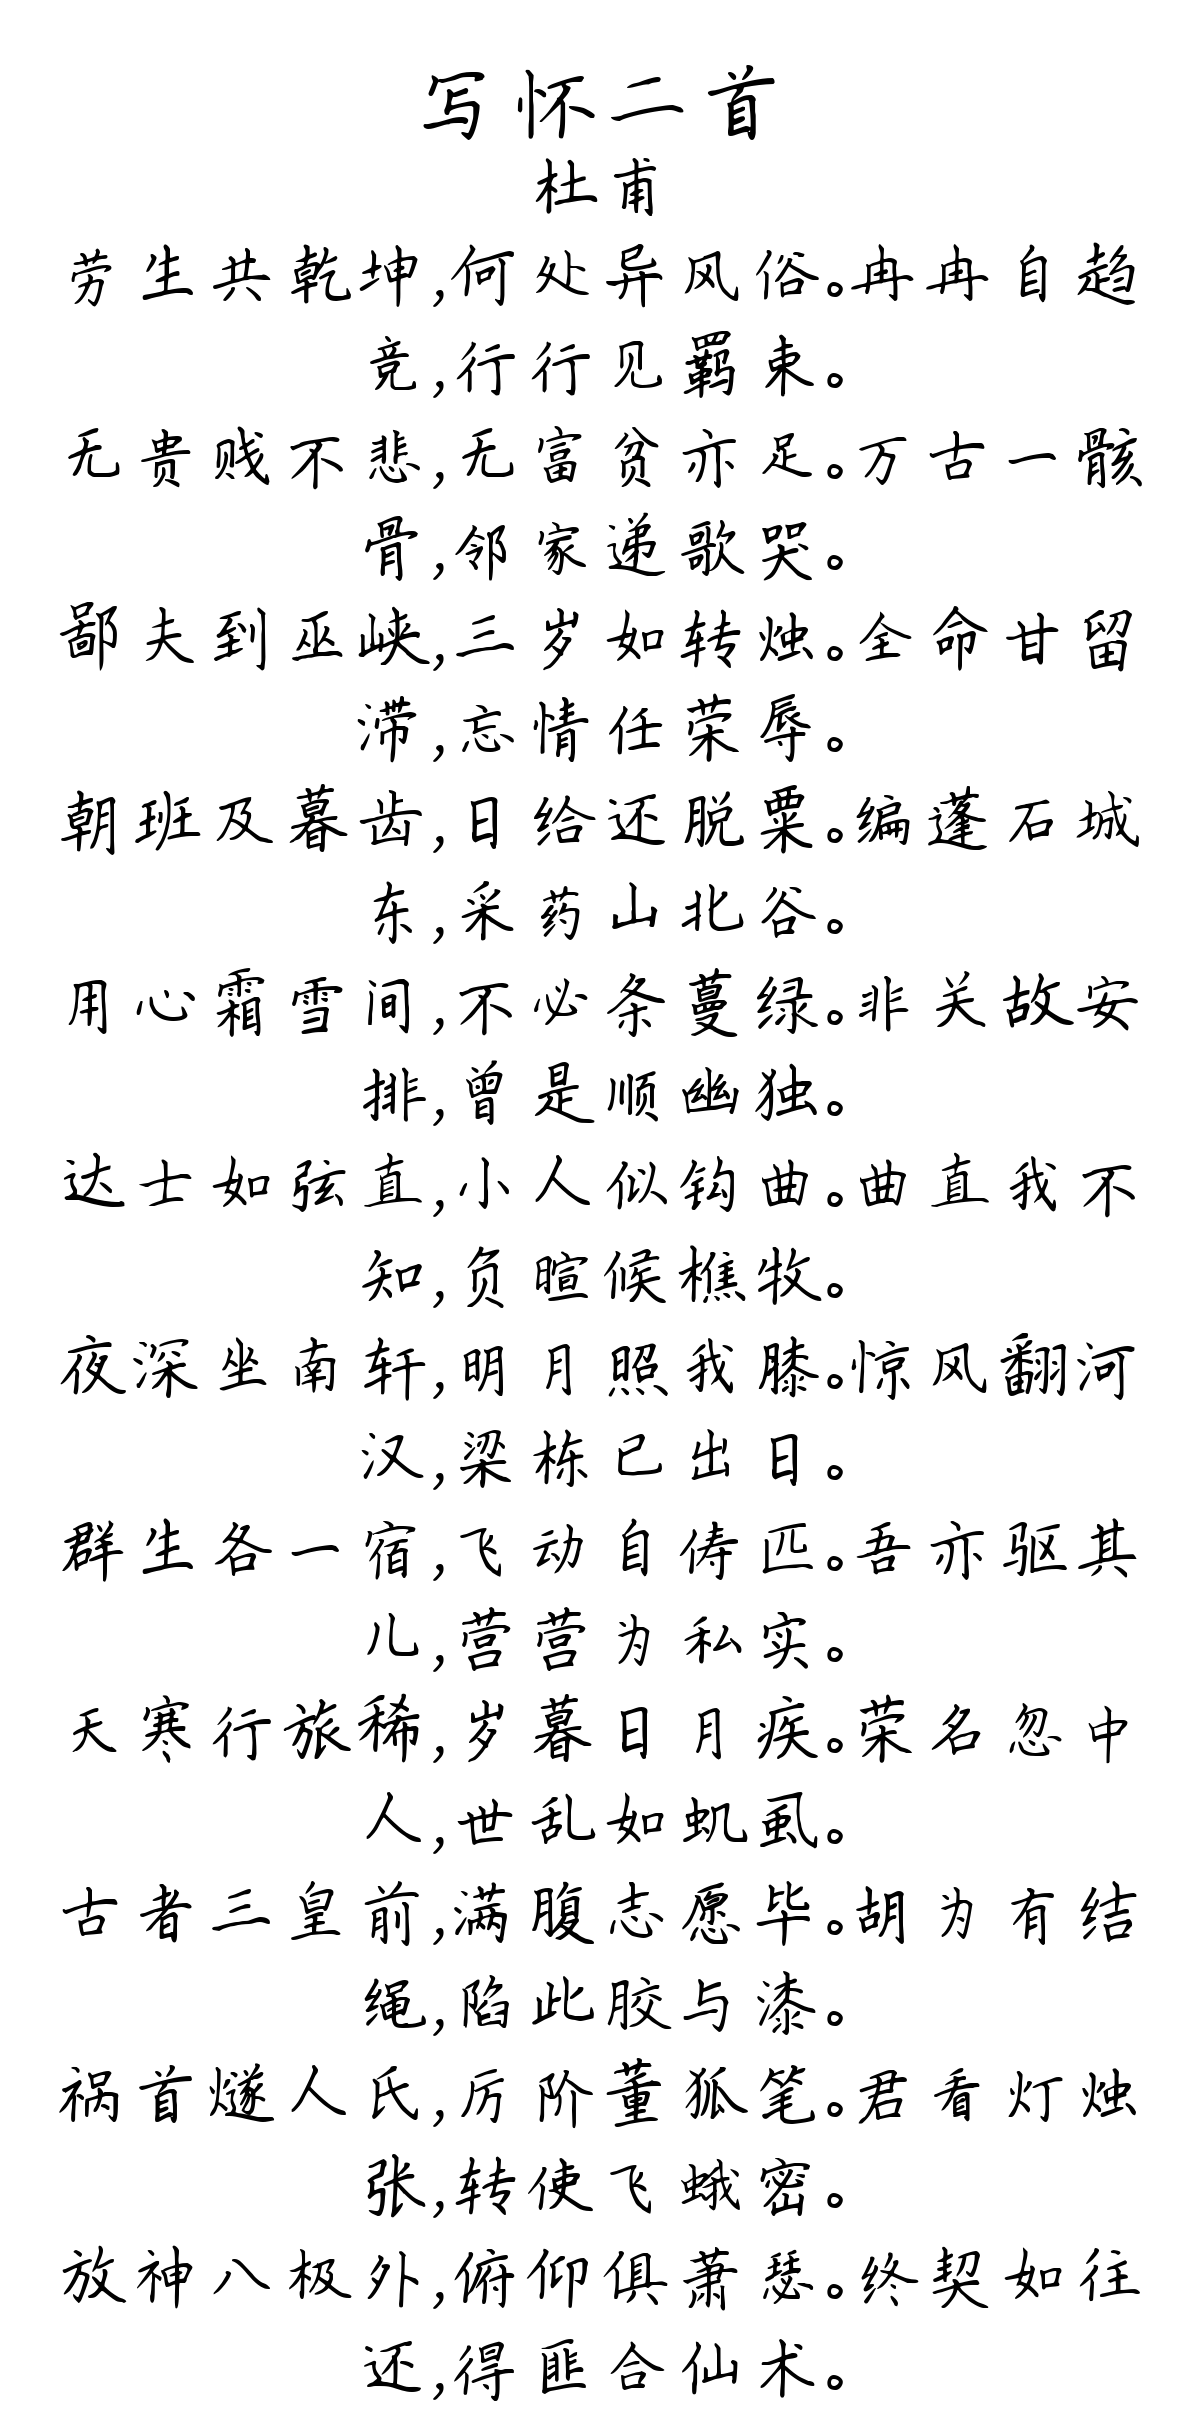 写怀二首
杜甫
劳生共乾坤,何处异风俗。冉冉自趋
竞,行行见羁束。
无贵贱不悲,无富贫亦足。万古一骸
骨,邻家递歌哭。
鄙夫到巫峡,三岁如转烛。全命甘留
滞,忘情任荣辱。
朝班及暮齿,日给还脱粟。编蓬石城
东,采药山北谷。
用心霜雪间,不必条蔓绿。非关故安
排,曾是顺幽独。
达士如弦直,小人似钩曲。曲直我不
知,负暄候樵牧。
夜深坐南轩,明月照我膝。惊风翻河
汉,梁栋已出日。
群生各一宿,飞动自俦匹。吾亦驱其
儿,营营为私实。
天寒行旅稀,岁暮日月疾。荣名忽中
人,世乱如虮虱。
古者三皇前,满腹志愿毕。胡为有结
绳,陷此胶与漆。
祸首燧人氏,厉阶董狐笔。君看灯烛
张,转使飞蛾密。
放神八极外,俯仰俱萧瑟。终契如往
还,得匪合仙术。